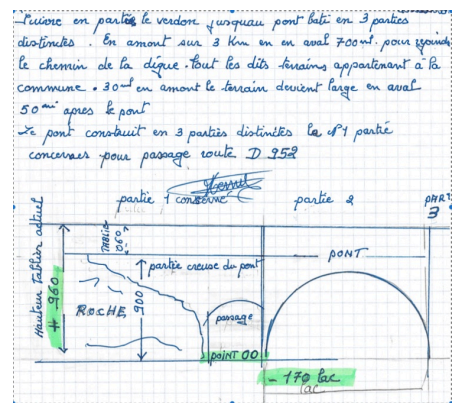 suivre en partie le verdon jusquau pont bati en 3 parties
distinctes. En amont sur 3 Km en en aval 700ml. pour rejoindre
le chemin de la digue. tout les dits terrains appartenant à la
commune. 30ml en amont le terrain devient large en aval
50ml apres le pont
Le pont construit en 3 parties distinctes la N°1 partie
concernée pour passage route D 952
partie 1 concerné
partie 2
PART
3
Hauteur Tablier actuel
# 960
TABLIER
060
partie creuse du pont
PONT
ROCHE
900
passage
POINT 00
- 170 lac
lac